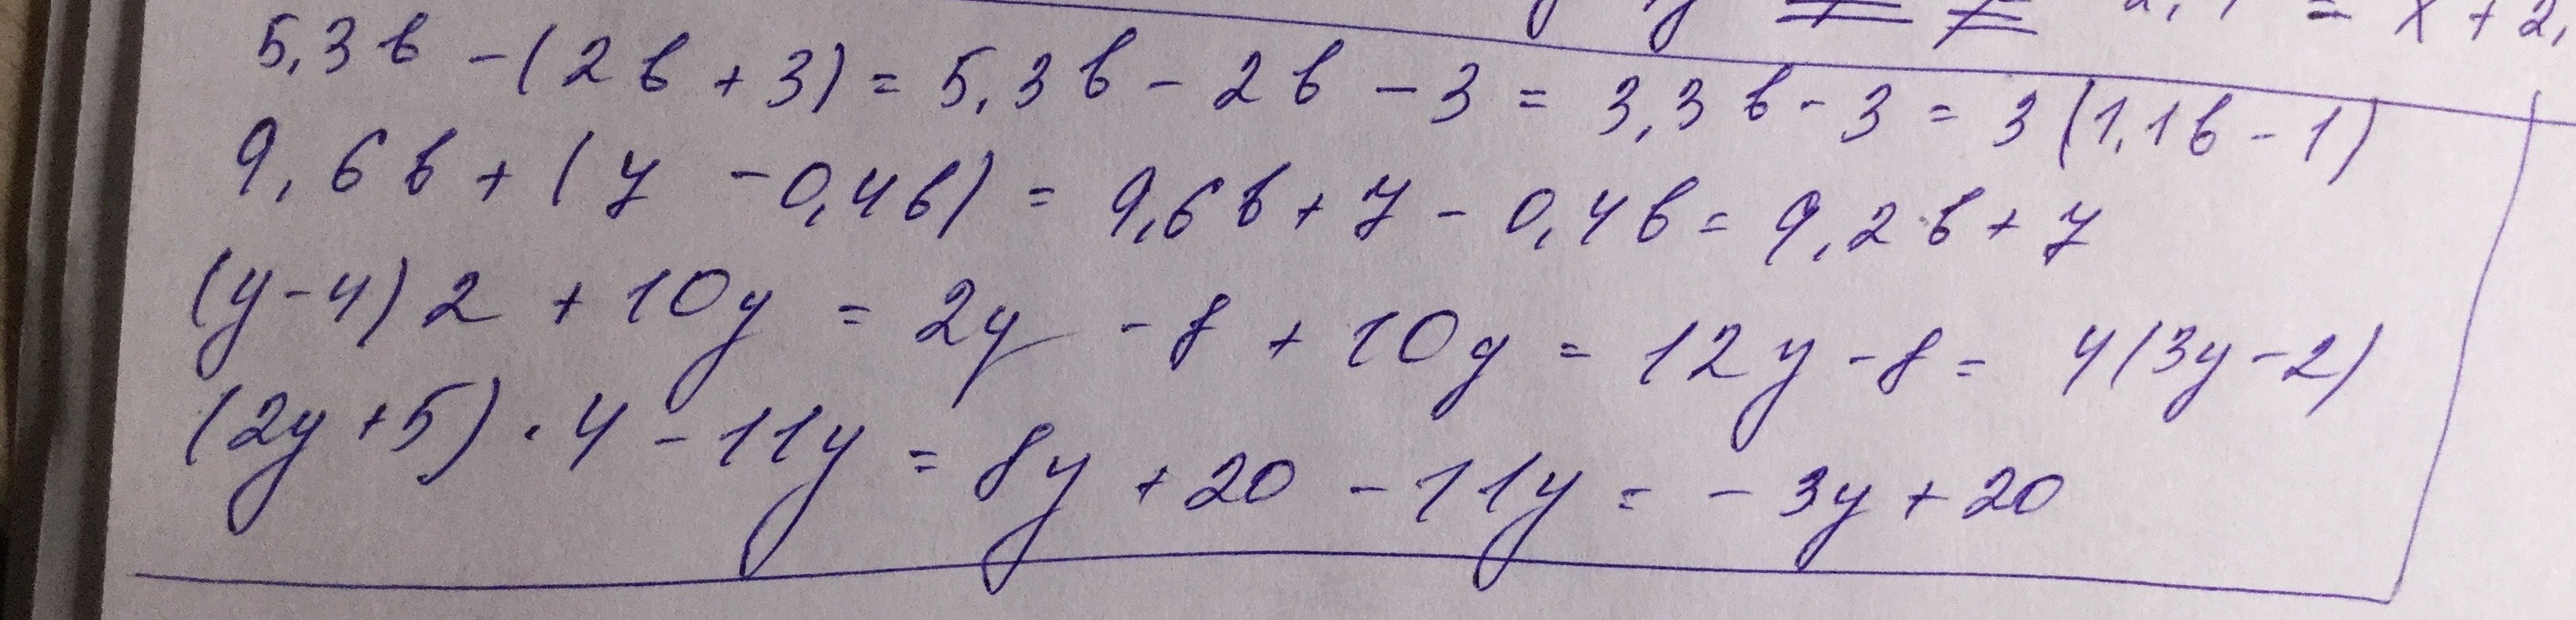 = x + 2,
5,3b - (2b + 3) = 5,3b - 2b - 3 = 3,3b - 3 = 3(1,1b - 1)
9,6b + (7 - 0,4b) = 9,6b + 7 - 0,4b = 9,2b + 7
(y-4)2 + 10y = 2y - 8 + 10y = 12y - 8 = 4(3y - 2)
(2y + 5) · 4 - 11y = 8y + 20 - 11y = - 3y + 20